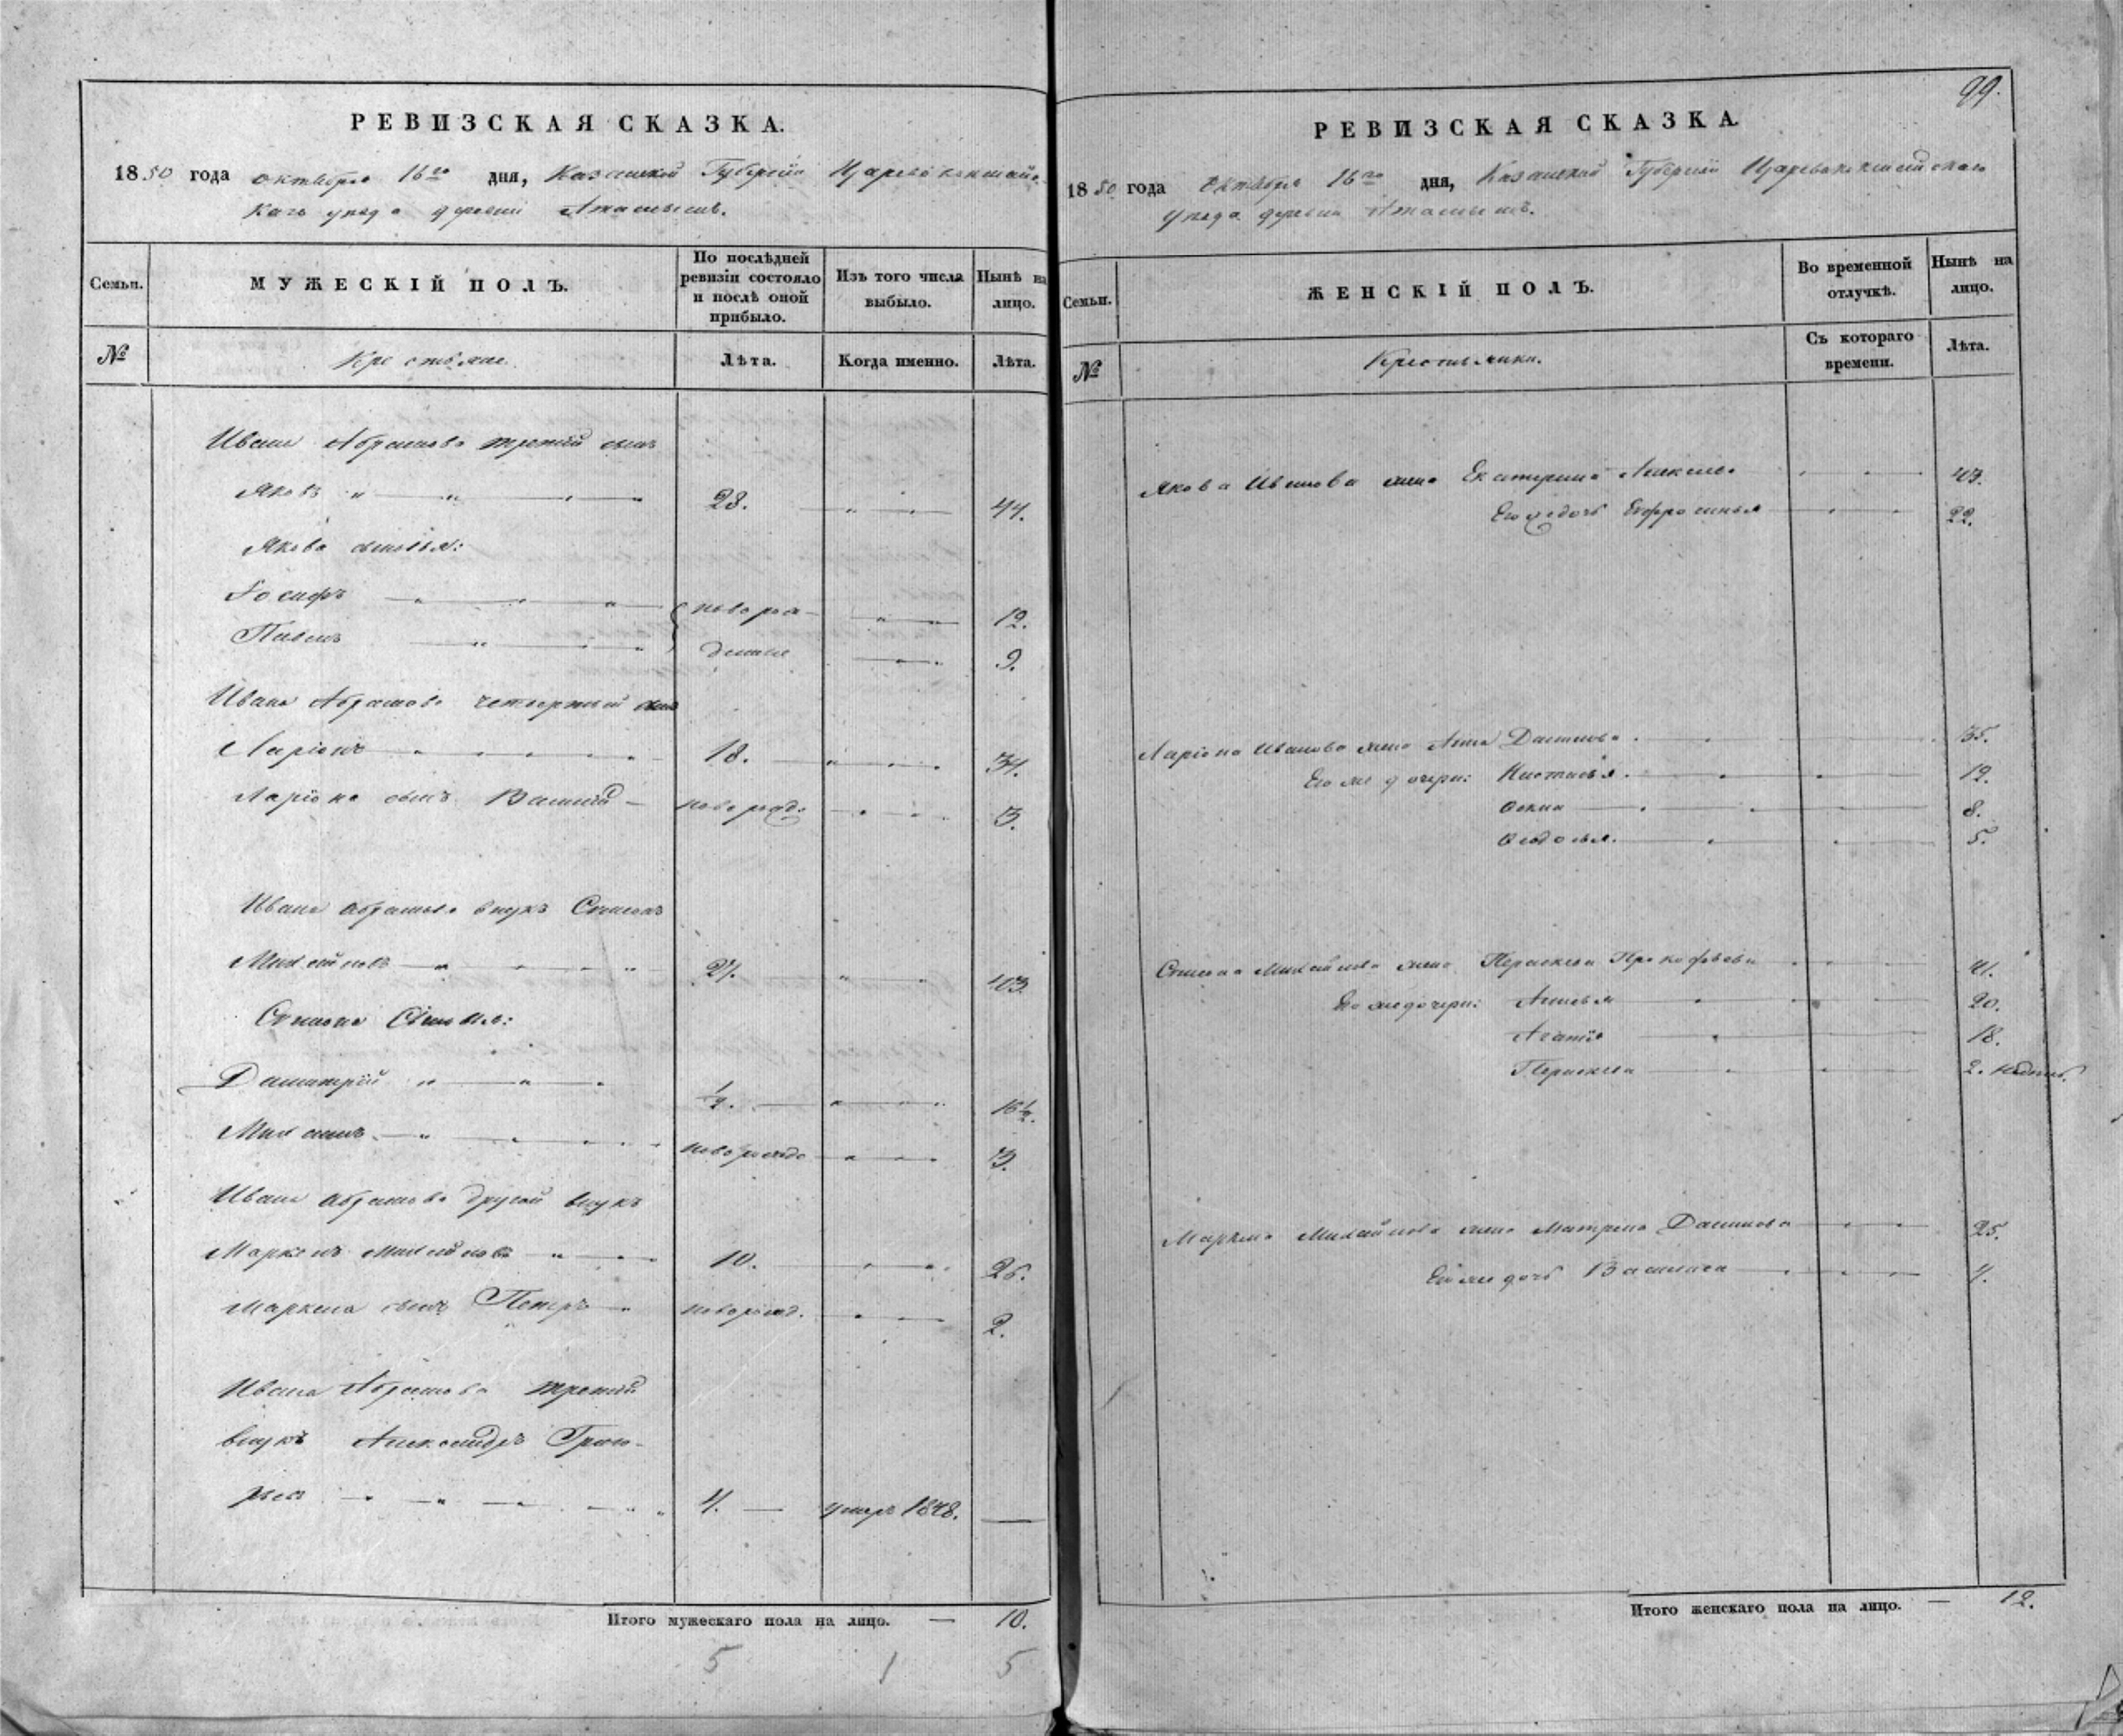 РЕВИЗСКАЯ СКАЗКА.
1850 года октября 16го дня, Казанской Губернии Царевококшайс-
каго уезда деревни
Семьи.
МУЖЕСКІЙ ПОЛЪ.
По послѣдней ревизіи состояло и послѣ оной прибыло.
Изъ того числа выбыло.
Нынѣ на лицо.
№
Крестьяне
Лѣта.
Когда именно.
Лѣта.
Ивана Абрамова третій сынъ
Яковъ 28. 44.
Якова сыновья:
Іосифъ новорож- 12.
Павелъ денные 9.
Ивана Абрамова четвертый сынъ
Ларіонъ 18. 34.
Ларіона сынъ Василій новорожд. 3.
Ивана Абрамова внукъ Семенъ
Михайловъ 27. 43.
Семена Сыновья:
Димитрій 1/2. 16 1/2.
новорожд 3.
Ивана Абрамова другой внукъ
Маркелъ Михайловъ 10. 26.
Маркела сынъ Петръ новорожд. 2.
Ивана Абрамова третій
внукъ Александръ Григо-
рьевъ 4. умеръ 1848.
Итого мужескаго пола на лицо. — 10.
5 1 5
99.
РЕВИЗСКАЯ СКАЗКА.
1850 года октября 16го дня, Казанской Губерніи Царевококшайскаго
уезда деревни
Семьи.
ЖЕНСКІЙ ПОЛЪ.
Во временной отлучкѣ.
Нынѣ на лицо.
№
Крестьянки.
Съ котораго времени.
Лѣта.
Якова Иванова жена Екатерина 43.
Его же дочь Ефросинья 22.
Ларіона Иванова жена Анна Данилова 35.
Его же дочери: Настасья 12.
8.
Федосья 5.
Семена Михайлова жена Парасковья Прокофьева 41.
Его же дочери: 20.
18.
2. недѣль.
Маркела Михайлова жена Матрена Данилова 25.
Его же дочь Василиса 4.
Итого женскаго пола на лицо. — 12.